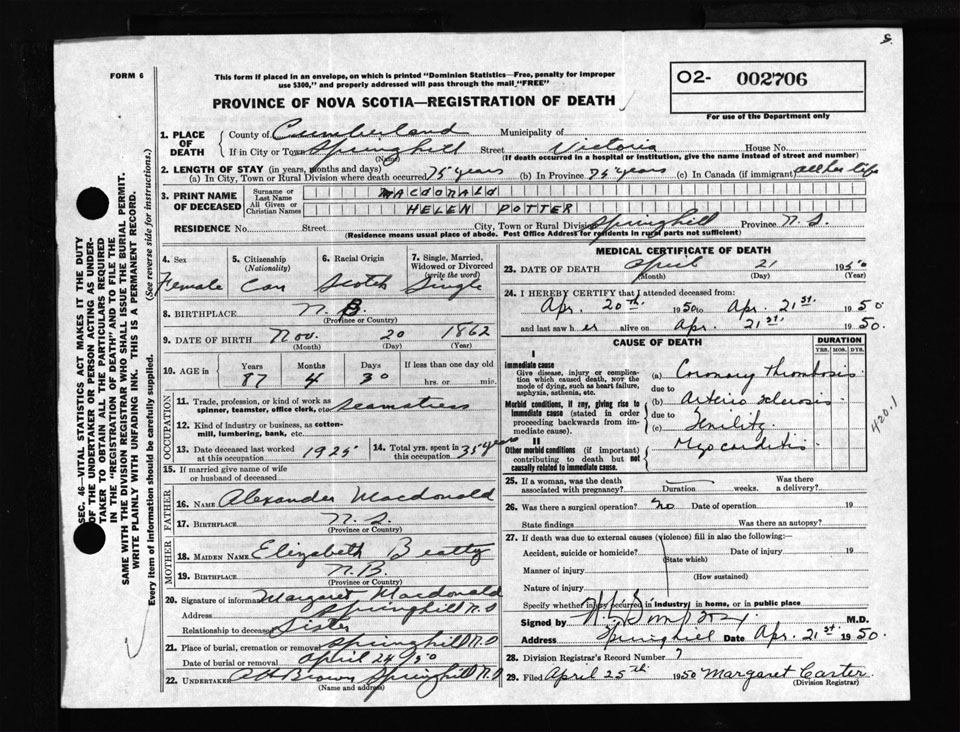 8.
FORM 6
This form if placed in an envelope, on which is printed "Dominion Statistics—Free, penalty for improper
use $300," and properly addressed will pass through the mail "FREE"
O2- 002706
For use of the Department only
PROVINCE OF NOVA SCOTIA—REGISTRATION OF DEATH
SEC. 46—VITAL STATISTICS ACT MAKES IT THE DUTY
OF THE UNDERTAKER OR PERSON ACTING AS UNDER-
TAKER TO OBTAIN ALL THE PARTICULARS REQUIRED
IN THE "REGISTRATION OF DEATH" AND TO FILE THE
SAME WITH THE DIVISION REGISTRAR WHO SHALL ISSUE THE BURIAL PERMIT.
WRITE PLAINLY WITH UNFADING INK. THIS IS A PERMANENT RECORD.
Every item of information should be carefully supplied. (See reverse side for instructions.)
1. PLACE OF DEATH
County of Cumberland Municipality of
If in City or Town Springhill Street Victoria House No.
(Name) (If death occurred in a hospital or institution, give the name instead of street and number)
2. LENGTH OF STAY (in years, months and days)
(a) In City, Town or Rural Division where death occurred 75 years (b) In Province 75 years (c) In Canada (if immigrant) all her life
3. PRINT NAME OF DECEASED
Surname or Last Name MACDONALD
All Given or Christian Names HELEN POTTER
RESIDENCE No. Street City, Town or Rural Division Springhill Province N.S.
(Residence means usual place of abode. Post Office Address for residents in rural parts not sufficient)
4. Sex
Female
5. Citizenship
(Nationality)
Can
6. Racial Origin
Scotch
7. Single, Married, Widowed or Divorced
(write the word)
Single
8. BIRTHPLACE N.B.
(Province or Country)
9. DATE OF BIRTH Nov. 20 1862
(Month) (Day) (Year)
10. AGE in
Years Months Days If less than one day old
87 4 30 hrs. or min.
OCCUPATION
11. Trade, profession or kind of work as
spinner, teamster, office clerk, etc. Seamstress
12. Kind of industry or business, as cotton-
mill, lumbering, bank, etc.
13. Date deceased last worked
at this occupation 1925
14. Total yrs. spent in
this occupation 35 years
15. If married give name of wife
or husband of deceased
FATHER
16. NAME Alexander Macdonald
17. BIRTHPLACE N.S.
(Province or Country)
MOTHER
18. MAIDEN NAME Elizabeth Beatty
19. BIRTHPLACE N.B.
(Province or Country)
20. Signature of informant Margaret Macdonald
Address Springhill N.S
Relationship to deceased Sister
21. Place of burial, cremation or removal Springhill N.S
Date of burial or removal April 24/50
22. UNDERTAKER A H Brown Springhill N.S
(Name and address)
MEDICAL CERTIFICATE OF DEATH
23. DATE OF DEATH April 21 1950
(Month) (Day) (Year)
24. I HEREBY CERTIFY that I attended deceased from:
Apr. 20th. 1950 to Apr. 21st. 1950
and last saw h er alive on Apr. 21st. 1950.
CAUSE OF DEATH
DURATION
YRS. MOS. DYS.
I
Immediate cause
Give disease, injury or compli-
cation which caused death, NOT the
mode of dying, such as heart failure,
asphyxia, asthenia, etc.
(a) Coronary thrombosis
due to
Morbid conditions, if any, giving rise to
immediate cause (stated in order
proceeding backwards from im-
mediate cause).
(b) Arterio sclerosis
due to
(c) Senility
II
Other morbid conditions (if important)
contributing to death but not
causally related to immediate cause.
Myocarditis
420.1
25. If a woman, was the death
associated with pregnancy? Duration weeks. Was there
a delivery?
26. Was there a surgical operation? No Date of operation 19
State findings Was there an autopsy?
27. If death was due to external causes (violence) fill in also the following:—
Accident, suicide or homicide? Date of injury 19
(State which)
Manner of injury
(How sustained)
Nature of injury
Specify whether injury occurred in industry, in home, or in public place
Signed by M.D.
Address Springhill Date Apr. 21st. 1950.
28. Division Registrar's Record Number 7
29. Filed April 25th 1950 Margaret Carter.
(Division Registrar)